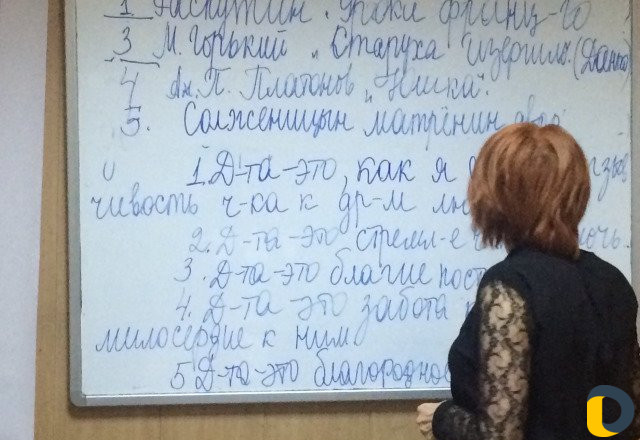 1 Распутин. Уроки франц-го
3 М. Горький „Старуха Изергиль" (Данко)
4 Ан. П. Платонов „Юшка".
5. Солженицын Матрёнин двор
1. Д-та-это, как я
чивость ч-ка к др-м
2. Д-та-это стремл-е
3. Д-та-это благие пост
4. Д-та-это забота
милосердие к ним
5 Д-та-это благородно